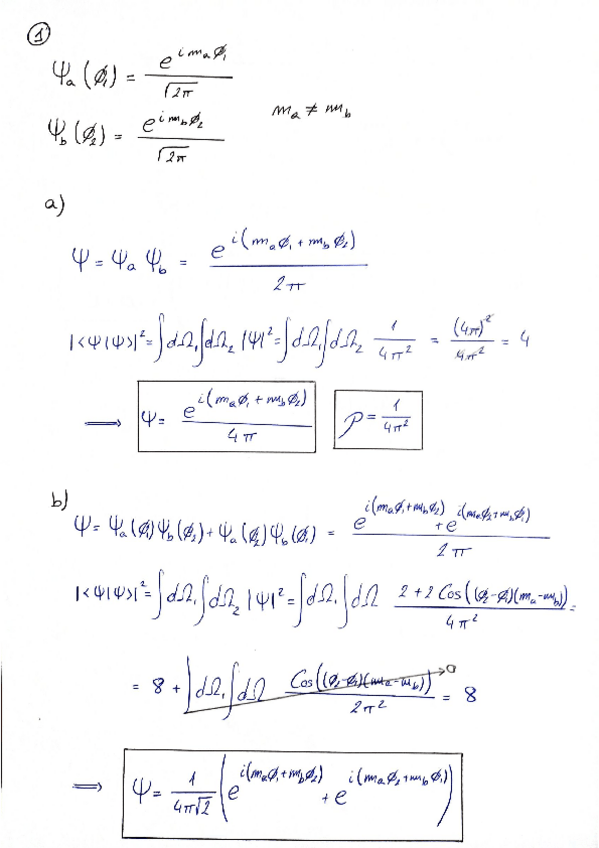 1
Ψa(ϕ1) = e^{i ma ϕ1} / √2π
Ψb(ϕ2) = e^{i mb ϕ2} / √2π    ma ≠ mb
a)
Ψ = Ψa Ψb = e^{i(ma ϕ1 + mb ϕ2)} / 2π
|<Ψ|Ψ>|² = ∫dΩ1 ∫dΩ2 |Ψ|² = ∫dΩ1 ∫dΩ2 1/4π² = (4π)²/4π² = 4
⟹ Ψ = e^{i(ma ϕ1 + mb ϕ2)} / 4π    P = 1/4π²
b)
Ψ = Ψa(ϕ1)Ψb(ϕ2) + Ψa(ϕ2)Ψb(ϕ1) = e^{i(ma ϕ1 + mb ϕ2)} + e^{i(ma ϕ2 + mb ϕ1)} / 2π
|<Ψ|Ψ>|² = ∫dΩ1 ∫dΩ2 |Ψ|² = ∫dΩ1 ∫dΩ 2 + 2 Cos((ϕ2-ϕ1)(ma-mb)) / 4π² =
= 8 + ∫dΩ1 ∫dΩ Cos((ϕ2-ϕ1)(ma-mb)) / 2π² → 0 = 8
⟹ Ψ = 1/4π√2 (e^{i(ma ϕ1 + mb ϕ2)} + e^{i(ma ϕ2 + mb ϕ1)})